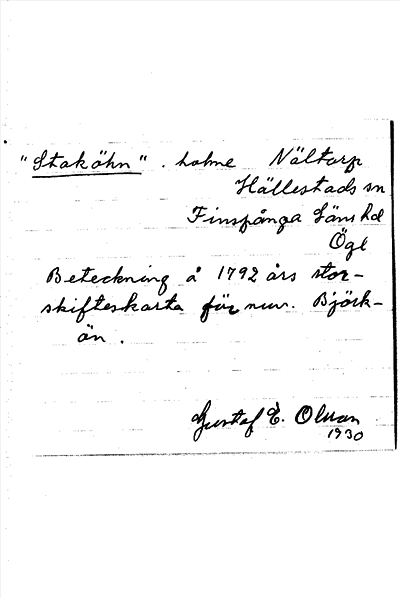 "Staköhn". holme Nältorp
Hällestads sn
Finspånga Läns hd
Ögl
Beteckning å 1792 års stor-
skifteskarta för nuv. Björk-
ön.
Gustaf E. Olsson
1930